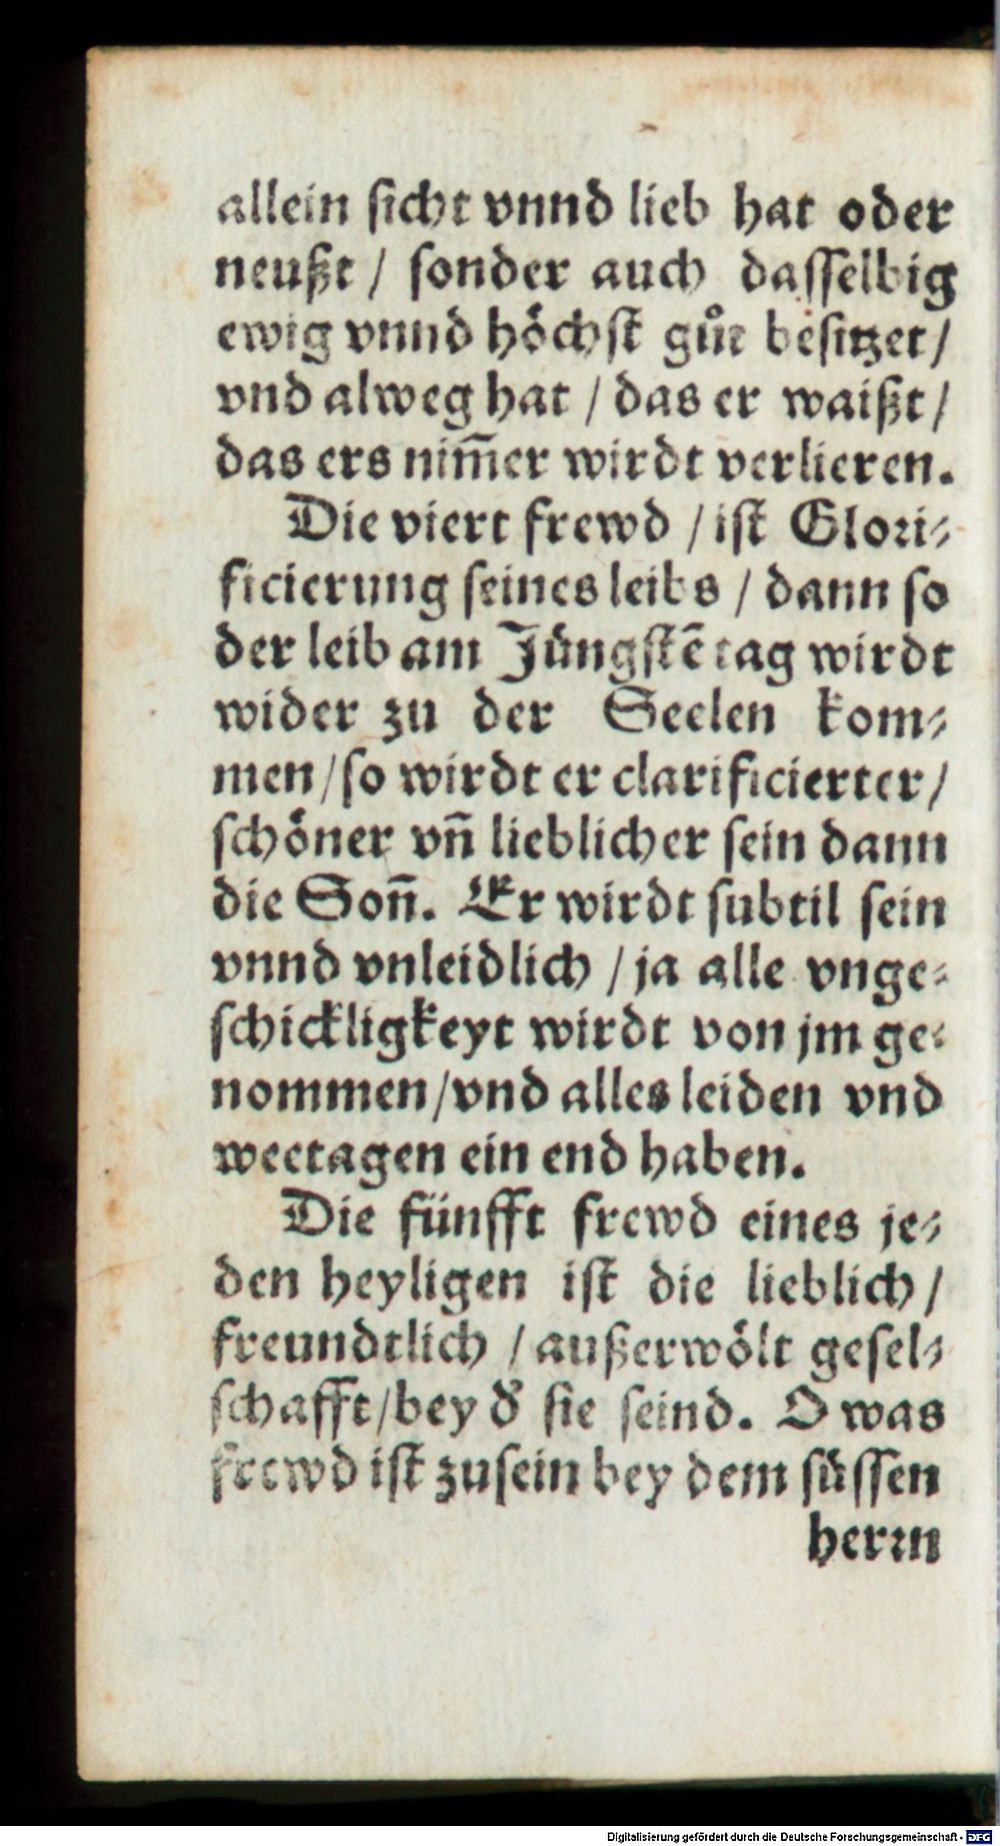 allein sicht vnnd lieb hat oder
neußt / sonder auch dasselbig
ewig vnnd höchst gůt besitzet /
vnd alweg hat / das er waißt /
das ers nim̃er wirdt verlieren.
Die viert frewd / ist Glori⸗
ficierung seines leibs / dann so
der leib am Jüngstẽ tag wirdt
wider zu der Seelen kom⸗
men / so wirdt er clarificierter /
schöner vñ lieblicher sein dann
die Soñ. Er wirdt subtil sein
vnnd vnleidlich / ja alle vnge⸗
schickligkeyt wirdt von jm ge⸗
nommen / vnd alles leiden vnd
weetagen ein end haben.
Die fünfft frewd eines je⸗
den heyligen ist die lieblich /
freundtlich / außerwölt gesel⸗
schafft / bey d̕ sie seind. O was
frewd ist zusein bey dem süssen
herrn
Digitalisierung gefördert durch die Deutsche Forschungsgemeinschaft - DFG